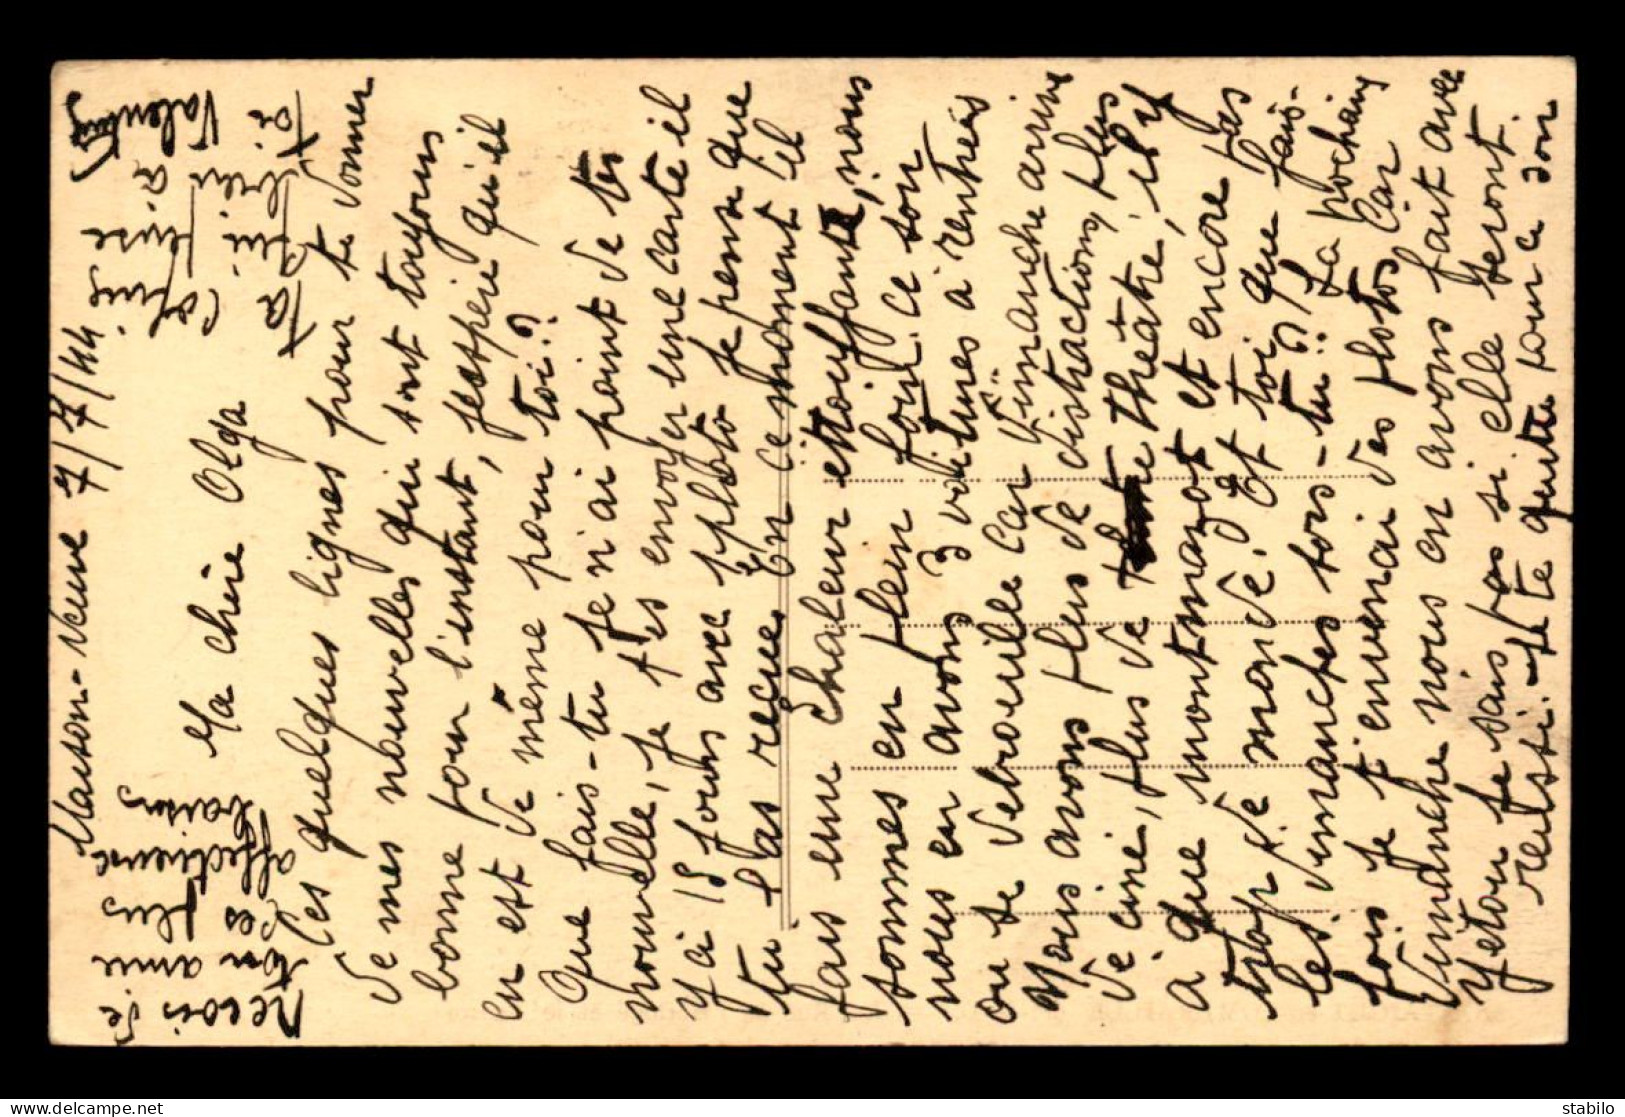 Maison-Neuve 7/7/44
Ma chère Olga
Ces quelques lignes pour te donner
de mes nouvelles qui sont toujours
bonne pour l'instant, j'esspère qu'il
en est de même pour toi??
Que fais-tu je n'ai point de tes
nouvelle, je t'es envoyer une carte il
y a 15 jours avec photo je pense que
tu l'as reçue. En ce moment il
fais une chaleur ettouffante, nous
sommes en plein foin, ce soir
nous en avons 3 voitures à rentrées
on se débrouille car Dimanche arrive
Mais avons plus de distractions, plus
de ciné, plus de théâtre, il y
a que montmazot et encore pas
trop de monde. Et toi que fais-
les dimanches sois-tu?? La prochaine
fois je t'enverrai des photos car
Dimanche nous en avons fait avec
Victor je sais pas si elle seront
reussi. Je te quitte pour ce soir
Recois de
ton amie
les plus
affectieuse
baisers
Ta Copine
qui pense
bien a
toi
Valentine
stabilo